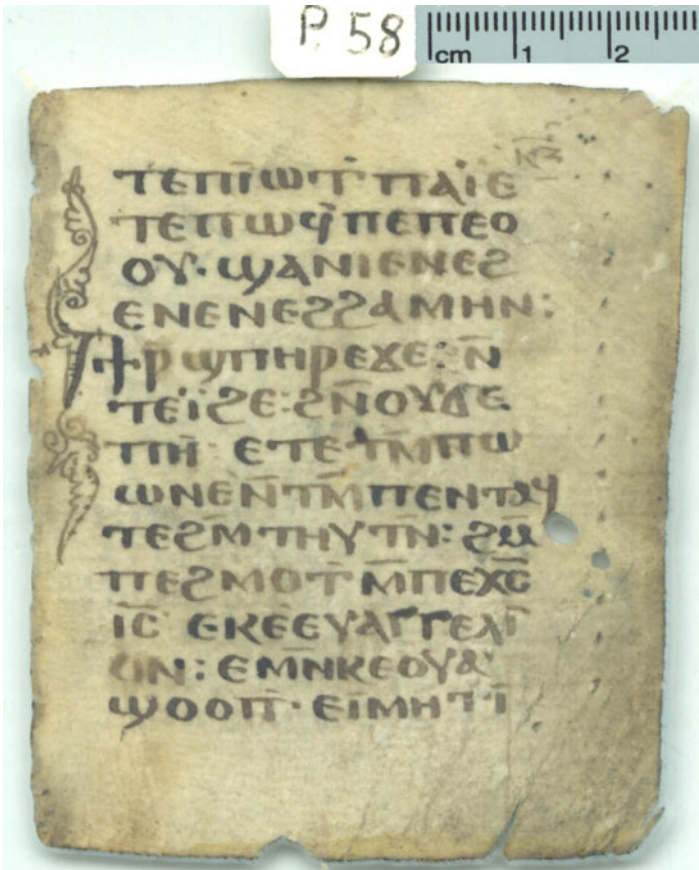 P. 58
cm 1 2
ⲧⲉⲡⲓ̈ⲱⲧ ⲡⲁⲓ̈ⲉ
ⲧⲉⲡⲱϥ̄ⲡⲉⲡⲉⲟ
ⲟⲩ· ϣⲁⲛⲓⲉⲛⲉϩ
ⲉⲛⲉⲛⲉϩϩⲁⲙⲏⲛ:
ϯⲣ̄ϣⲡⲏⲣⲉϫⲉ: ⲛ̄
ⲧⲉⲓ̈ϩⲉ: ϩⲛ̄ⲟⲩϭⲉ
ⲡⲏ̄· ⲉⲧⲉⲧⲙ̄ⲡⲱ
ⲱⲛⲉⲛ̄ⲧⲙ̄ⲡⲉⲛⲧⲁϥ
ⲧⲉϩⲙ̄ⲧⲏⲩⲧⲛ̄: ϩⲙ̄
ⲡⲉϩⲙⲟⲧ ⲙ̄ⲡⲉⲭ̄ⲥ̄
ⲓ̄ⲥ̄ ⲉⲕⲉⲉⲩⲁⲅⲅⲉⲗⲓ
ⲟⲛ: ⲉⲙⲛ̄ⲕⲉⲟⲩⲁ
ϣⲟⲟⲡ̄· ⲉⲓⲙⲏⲧⲓ̈